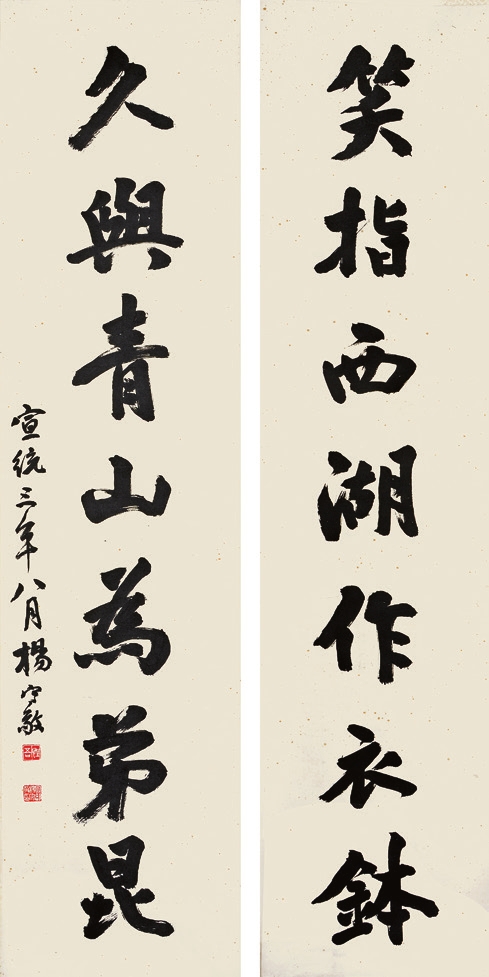 笑指西湖作衣鉢
久與青山為弟昆
宣統三年八月楊守敬